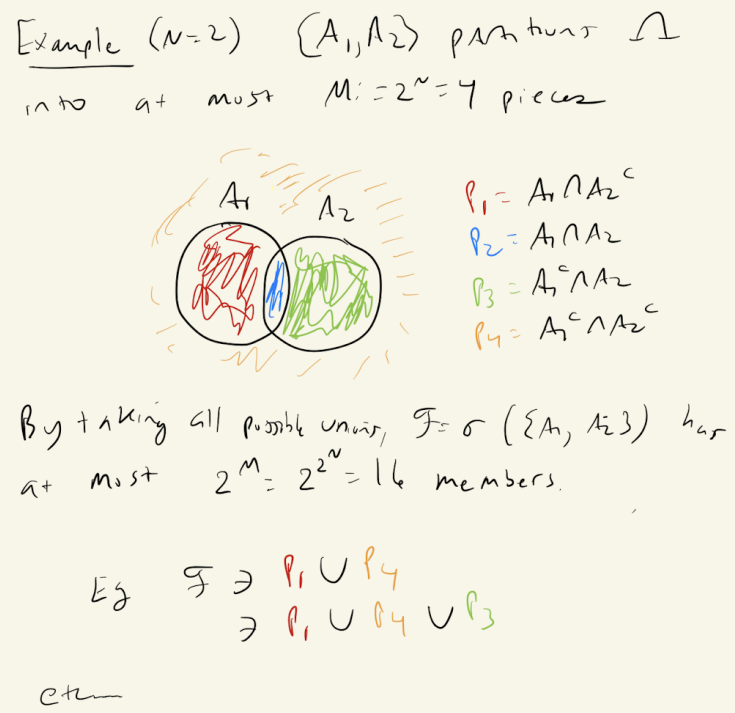 Example (N=2) {A₁, A₂} partitions Ω
into at most M:=2^N=4 pieces
A₁ A₂
P₁ = A₁ ∩ A₂^c
P₂ = A₁ ∩ A₂
P₃ = A₁^c ∩ A₂
P₄ = A₁^c ∩ A₂^c
By taking all possible unions, ℱ=σ({A₁, A₂}) has
at most 2^M = 2^2^N = 16 members.
Eg ℱ ∋ P₁ ∪ P₄
∋ P₁ ∪ P₄ ∪ P₃
etc